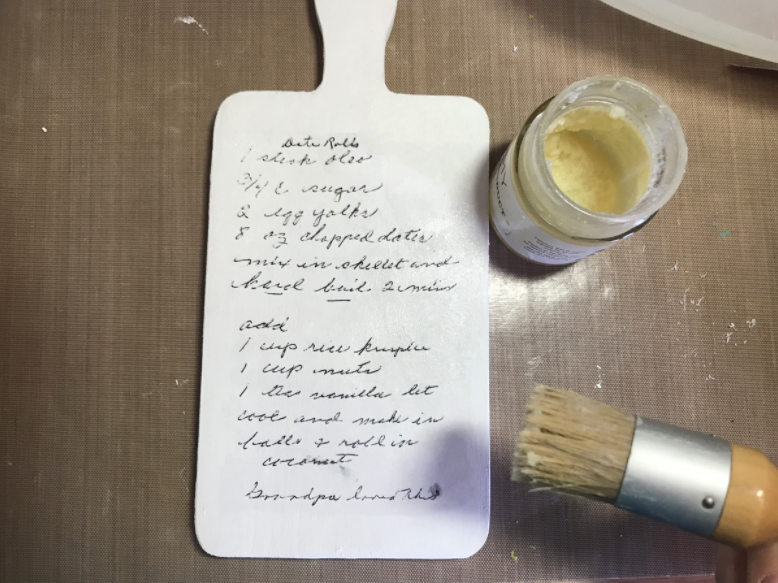 Date Rolls
1 stick oleo
3/4 c sugar
2 egg yolks
8 oz chopped dates
mix in skillet and
hard boil 2 mins
add
1 cup rice krispie
1 cup nuts
1 tea vanilla let
cool and make in
balls & roll in
coconut
Grandpa loved this